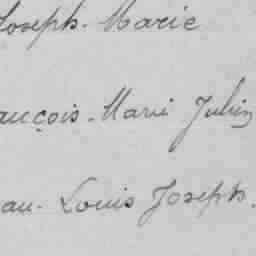 Joseph-Marie
ançois-Marie Julien
ean-Louis Joseph.